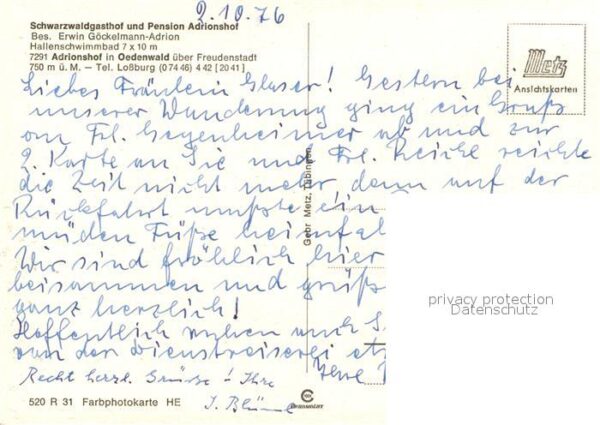 2.10.76
Schwarzwaldgasthof und Pension Adrionshof
Bes. Erwin Göckelmann-Adrion
Hallenschwimmbad 7 x 10 m
7291 Adrionshof in Oedenwald über Freudenstadt
750 m ü. M. – Tel. Loßburg (0 74 46) 4 42 [20 41]
Metz
Ansichtskarten
Liebes Fräulein Glaser! Gestern bei
unserer Wanderung ging ein Gruß
an Frl. Gegenheimer ab und zur
2. Karte an Sie und Frl. Reichle reichte
die Zeit nicht mehr, denn auf der
Rückfahrt mußte ein
müden Füße heimfal
Wir sind fröhlich hier
beisammen und grüß
ganz herzlich!
Hoffentlich ruhen auch S
von der Dienstreiserei et
Ihre
Recht herzl. Grüße! Ihre
J. Blüml
Gebr. Metz, Tübingen
privacy protection
Datenschutz
520 R 31 Farbphotokarte HE